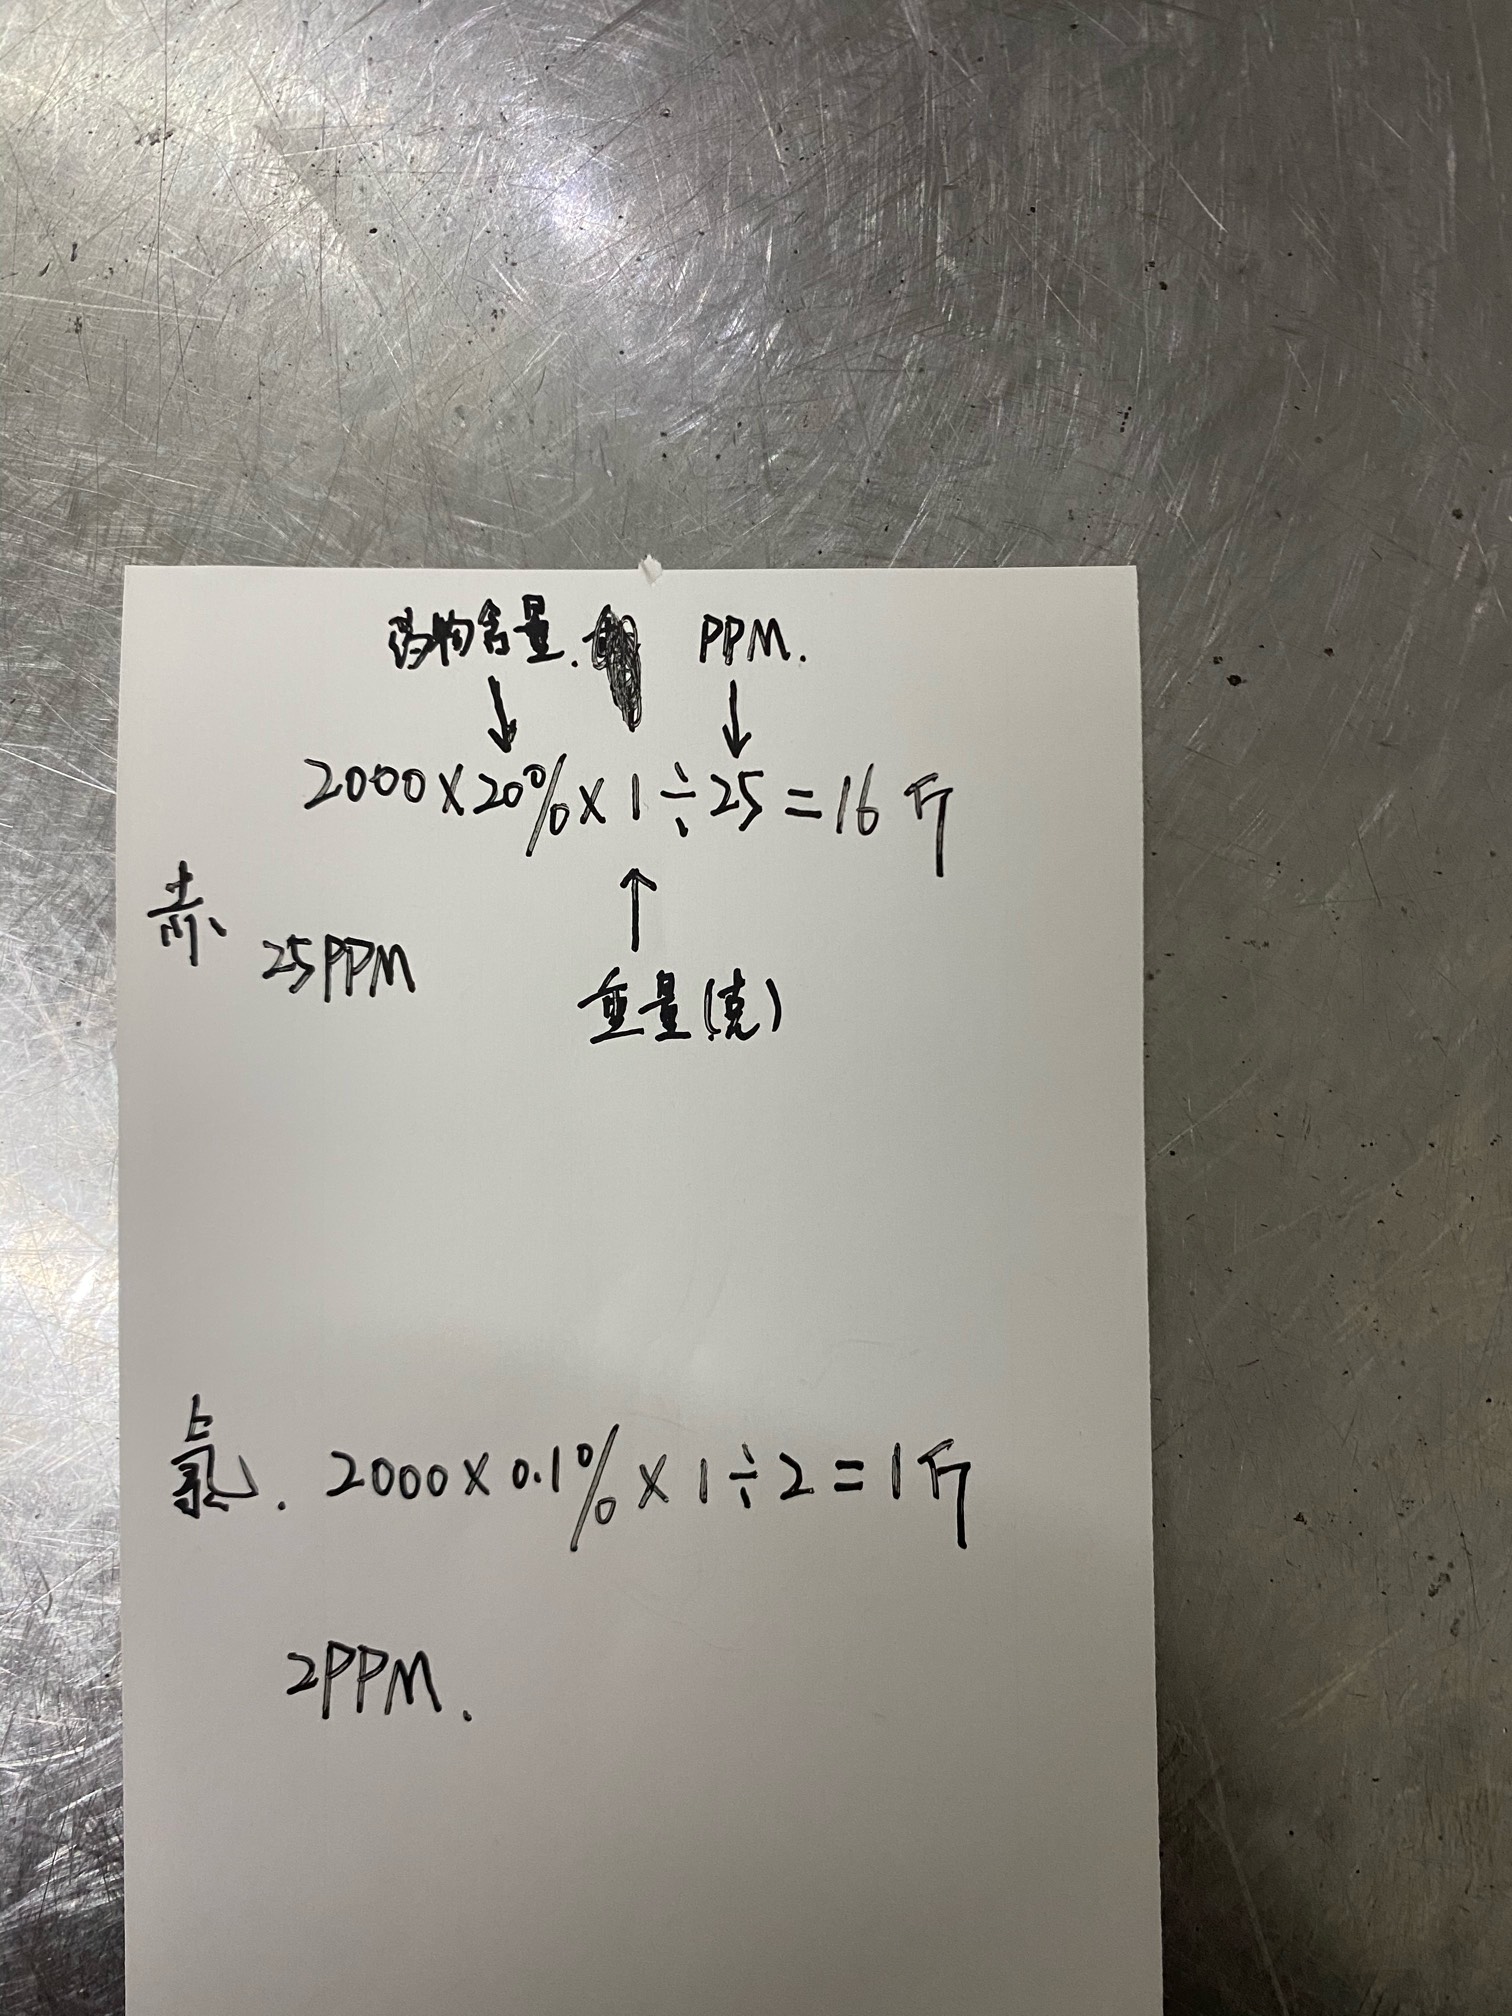 药物含量. PPM.
2000×20%×1÷25=16斤
赤
25PPM
重量(克)
氯. 2000×0.1%×1÷2=1斤
2PPM.